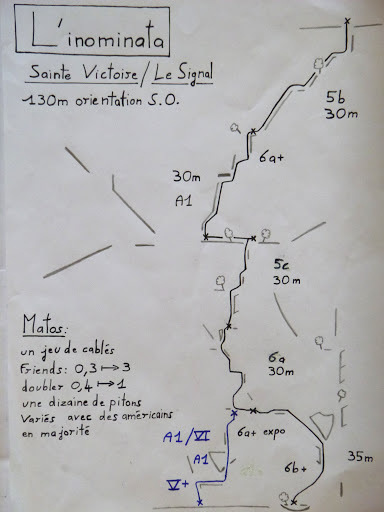 L'inominata
Sainte Victoire/Le Signal
130m orientation S.O.
5b
30m
6a+
30m
A1
5c
30m
6a
30m
Matos:
un jeu de cablés
Friends: 0,3 ↦ 3
doubler 0,4 ↦ 1
une dizaine de pitons
Variés avec des américains
en majorité
A1/VI
6a+ expo
A1
6b+
35m
V+